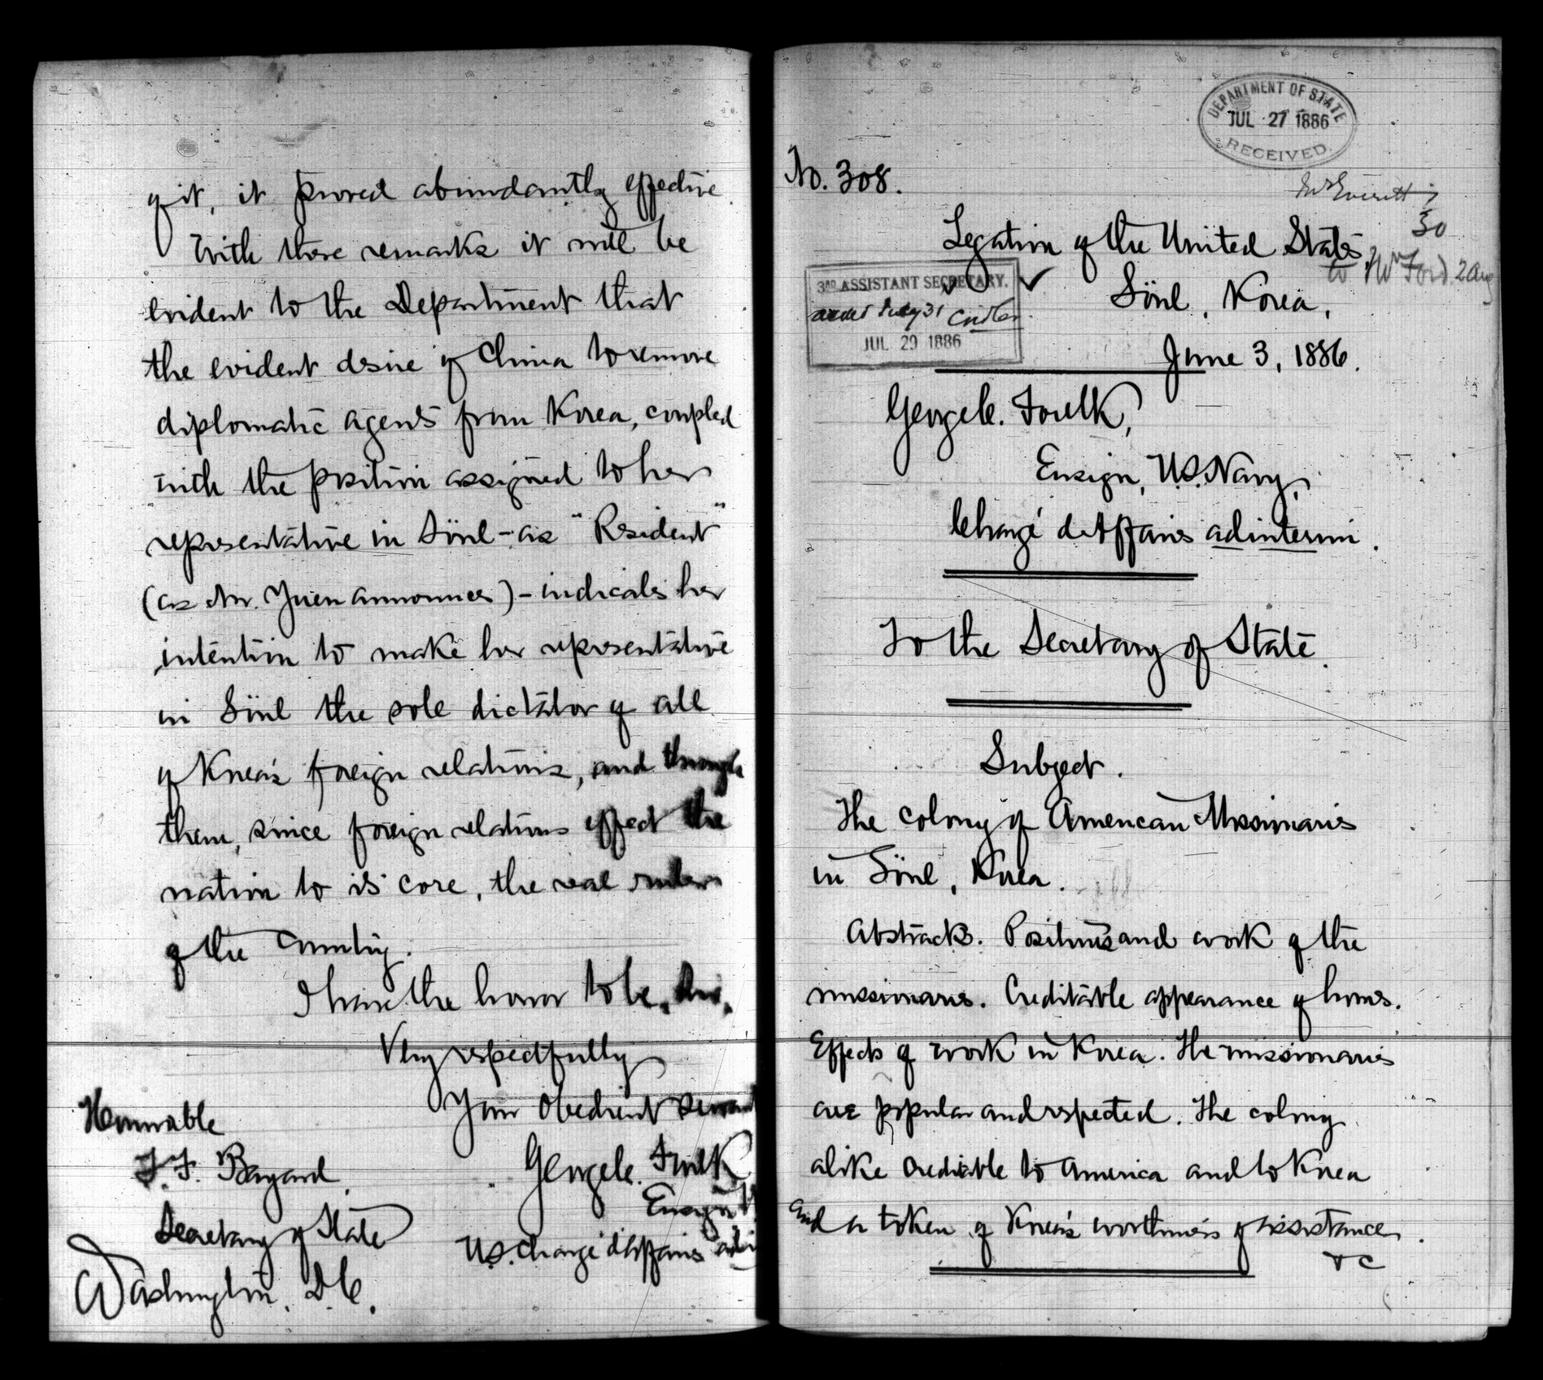 of it, it proved abundantly effective.
With these remarks it will be
evident to the Department that
the evident desire of China to remove
diplomatic agents from Korea, coupled
with the position assigned to her
representative in Söul - as "Resident"
(as Mr. Yuen announces) - indicates her
intention to make her representative
in Söul the sole dictator of all
of Korea's foreign relations, and through
them, since foreign relations effect the
nation to its core, the real rulers
of the country.
I have the honor to be, Sir,
Very respectfully
Your obedient servant
George C. Foulk
Ensign
U.S. Chargé d'Affaires
Honorable
T. F. Bayard
Secretary of State
Washington, D.C.
DEPARTMENT OF STATE
JUL 27 1886
RECEIVED.
No. 308.
Mr Everett
30
to Mr Ford. 2 Aug
Legation of the United States
Söul, Korea,
June 3, 1886.
3RD ASSISTANT SECRETARY.
July 31
JUL 29 1886
George C. Foulk,
Ensign, U.S. Navy,
Chargé d'Affaires ad interim.
To the Secretary of State.
Subject.
The colony of American Missionaries
in Söul, Korea.
Abstract. Positions and work of the
missionaries. Creditable appearance of homes.
Effects of work in Korea. The missionaries
are popular and respected. The colony
alike creditable to America and to Korea
and a token of Korea's worthiness of assistance.